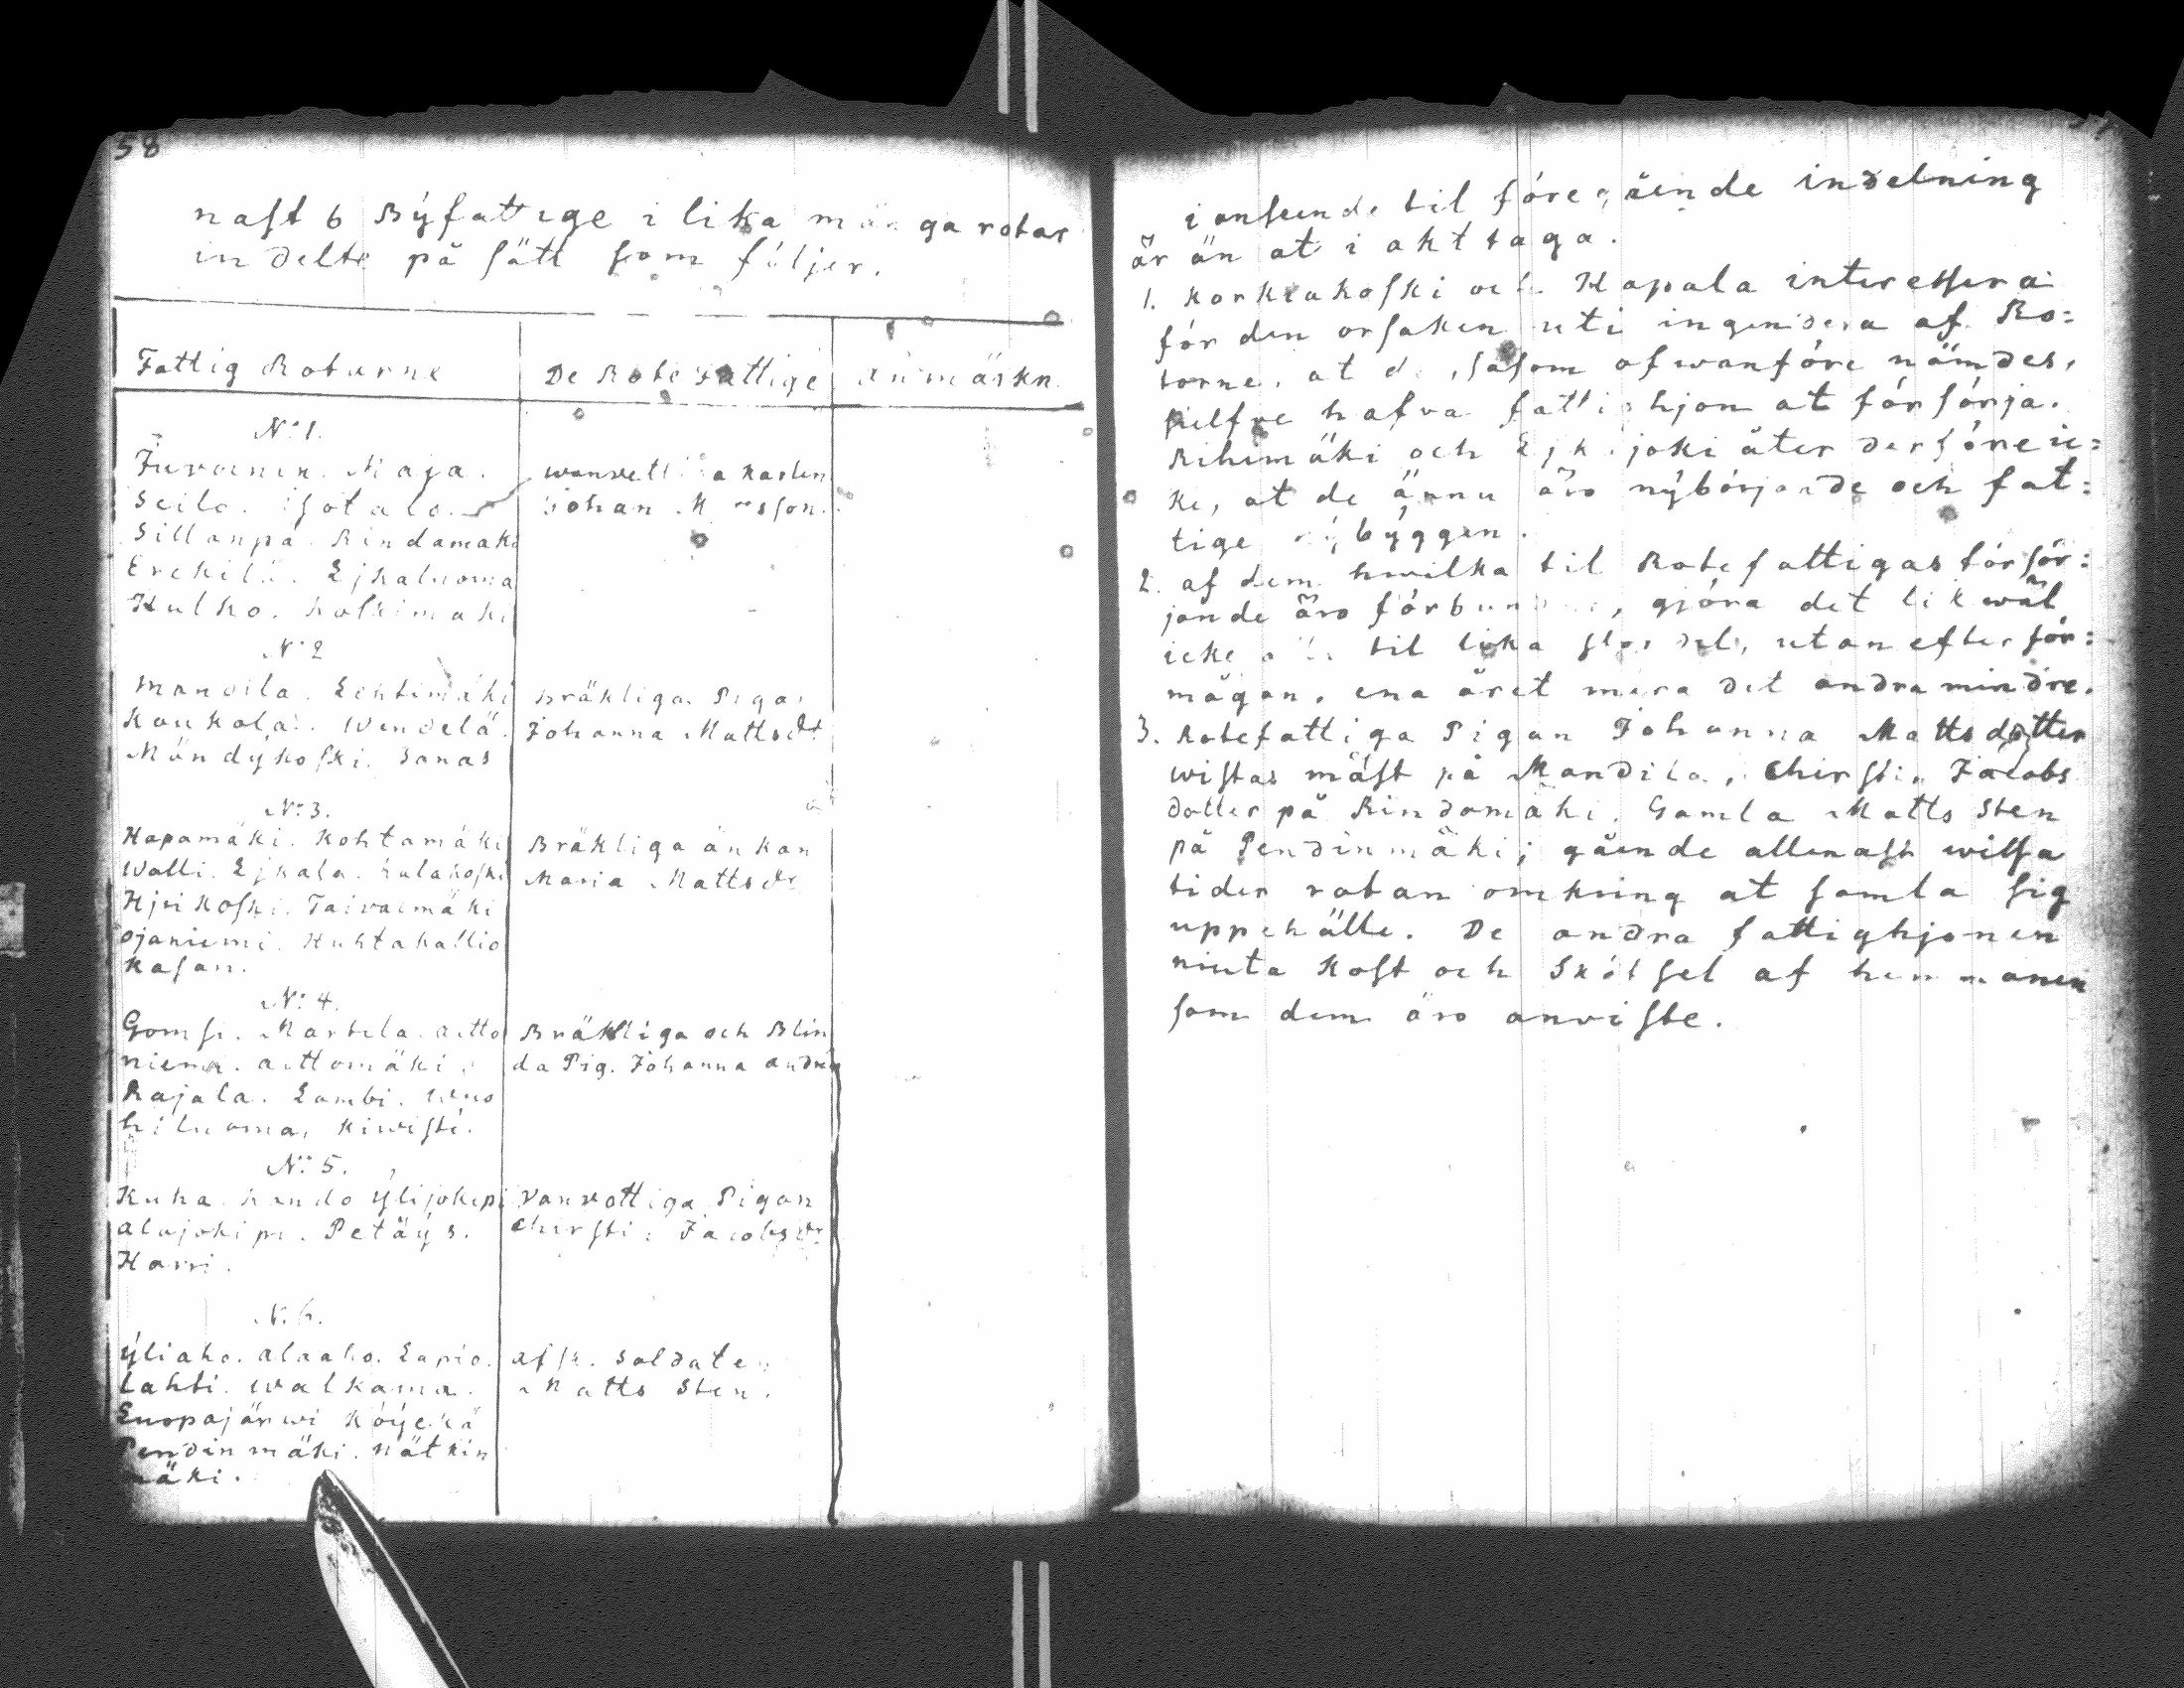 58
nast 6 Býfattige i lika många rotar
indelte på sätt som följer.
Fattig Rotarne
De Rote Fattige
Anmärkn.
N:o 1.
Juvoinen. Maja.
Seilo. Isotalo.
Sillanpä. Rindamäki
Erckilä. Ejkaluoma
Hulko. Koskimäki
wanvettiga Karlen
Johan M
N:o 2
Mandila. Lehtimäki
Koukola. Wendelä.
Mändýkoski. Sanas
Bräkliga Pigan
Johanna Mattsdr
N:o 3.
Hapamäki. Kohtamäki
Walli. Ejkala. Kalakoski
Hjrikoski. Taivalmäki
Ojaniemi. Huhtakallio
Kasan.
Bräkliga änkan
Maria Mattsdr
N:o 4.
Gomsi. Martela. Aitto
niemi. Aittomäki.
Rajala. Lambi. Wuo
hiluoma. Kiwistö.
Bräkliga och Blin
da Pig. Johanna Andr
N:o 5.
Kuha. Kando Ylijokipi
Alajokipi. Petäys.
Harri.
Vanvettiga Pigan
Chirsti: Jacobsdr
N:o 6.
Yliaho. Alaaho. Lapio.
Lahti. Walkama.
Luopajärwi Köykkä
Pendinmäki. Nätkin
mäki.
Afsk. Soldaten
Matts Sten.
i anseende til föregående indelning
är än at i akt taga.
1. Korkiakoski och Kapala interessera
för den orsaken uti ingendera af Ro=
torne, at de, såsom ofwanföre nämdes,
sielfve hafva fattighjon at försörja.
Rihimäki och Ejkijoki åter derföre ic=
ke, at de ännu äro nýbörjande och fat=
tige nýbýggen.
2. af dem hwilka til Rotefattigas försör=
jande äro förbundne, gjöra det likwäl
icke alla til lika stor del, utan efter för=
mågan, ena året mera det andra mindre.
3. Rotefattiga Pigan Johanna Mattsdotter
wistas mäst på Mandila, Chirsti: Jacobs
dotter på Rindamäki. Gamla Matts Sten
på Pendinmäki; gående allenast wissa
tider rotan omkring at samla sig
uppehälle. De andra fattighjonen
niuta Kost och Skötsel af hemmanen
som dem äro anviste.